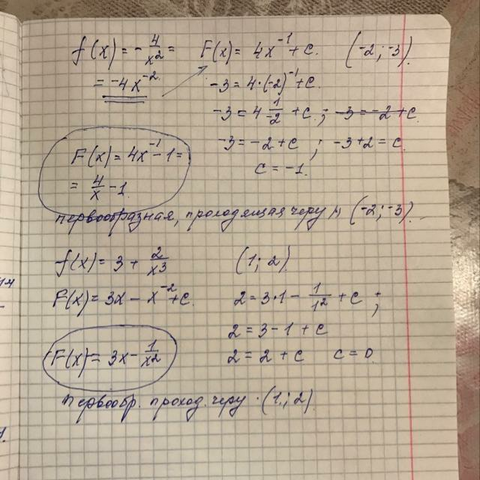 f(x) = - 4/x² = F(x) = 4x⁻¹ + c. (-2; -3)
= -4x⁻² -3 = 4·(-2)⁻¹ + c.
-3 = 4 1/-2 + c ; -3 = -2 + c
-3 = -2 + c ; -3+2 = c
c = -1.
F(x) = 4x⁻¹ - 1 =
= 4/x - 1
первообразная, проходящая через м (-2; -3).
f(x) = 3 + 2/x³ (1; 2)
F(x) = 3x - x⁻² + c. 2 = 3·1 - 1/1² + c ;
2 = 3 - 1 + c
F(x) = 3x - 1/x² 2 = 2 + c c = 0
первообр. проход. через · (1; 2)